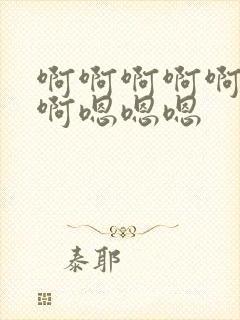 啊啊啊啊啊
啊嗯嗯嗯
泰耶